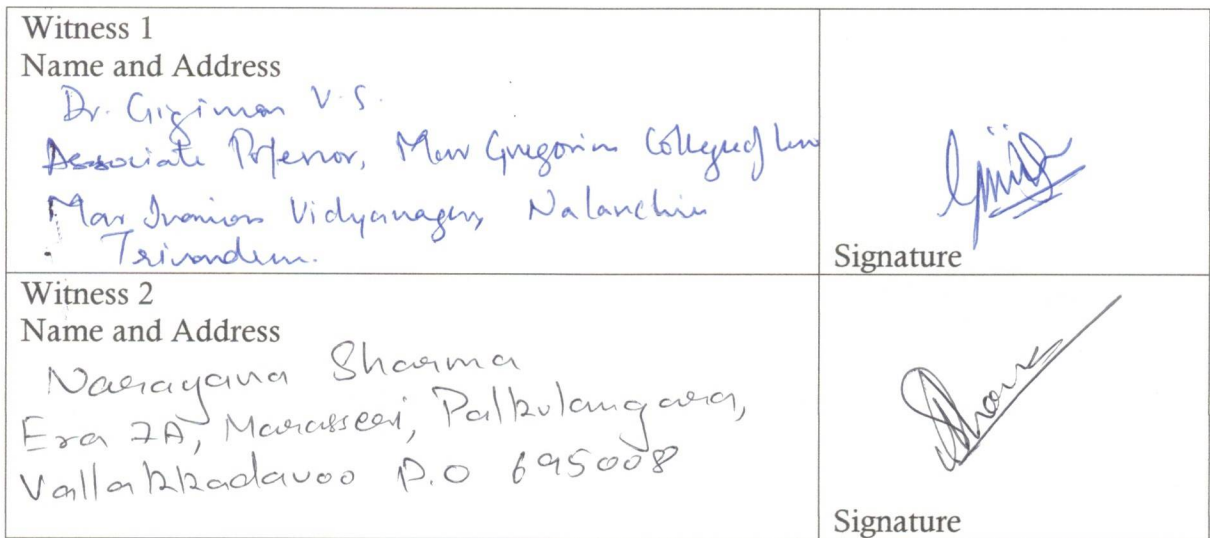 Witness 1
Name and Address
Dr. Gigimon V.S.
Associate Professor, Mar Gregorios College of Law
Mar Ivanios Vidyanagar, Nalanchira
Trivandrum.
Signature
Witness 2
Name and Address
Narayana Sharma
Era 7A, Marasseri, Palkulangara,
Vallakkadavoo P.O 695008
Signature